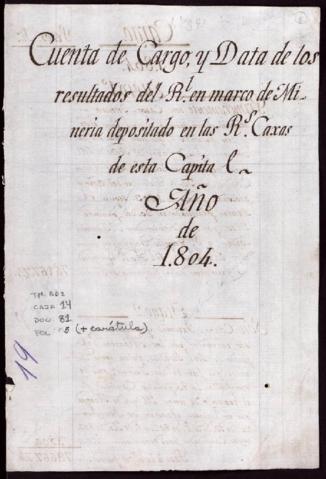 Cuenta de Cargo, y Data de los
resultados del Rl. en marco de Mi-
neria depositado en las Rs. Caxas
de esta Capital
Año
de
1.804.
CAJA 14
DOC 81
FOL 5 (+ carátula)
19